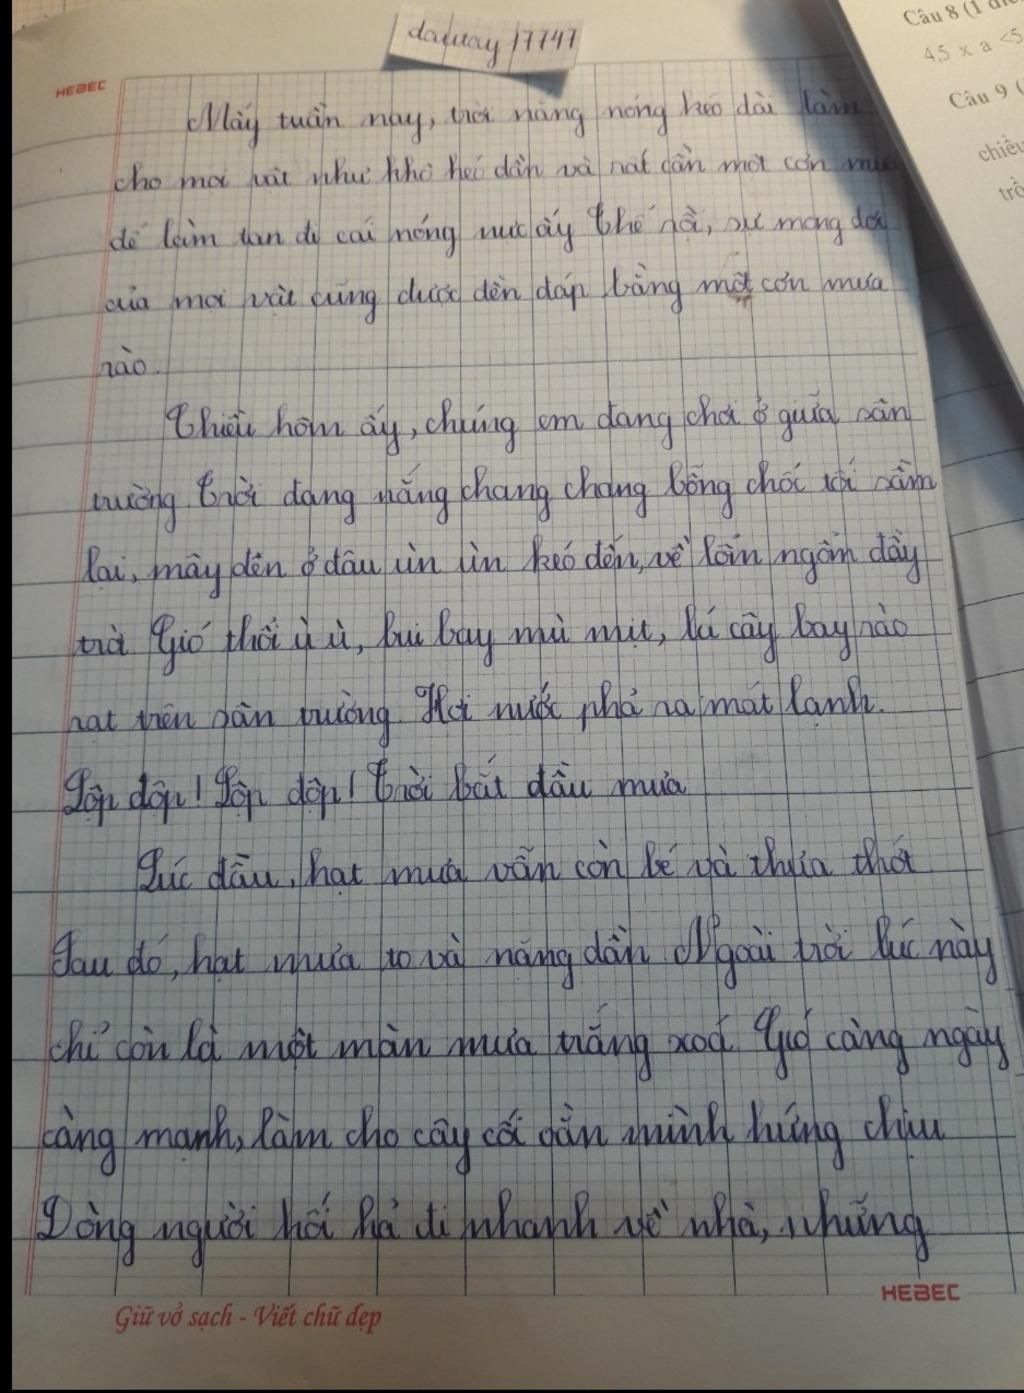 dayuay 17747
HEBEC
Mấy tuần nay, trời nắng nóng kéo dài làm
cho mọi vật như khô héo dần và rất cần một cơn mưa
để làm tan đi cái nóng nực ấy Thế rồi, sự mong đợi
của mọi vật cũng được đền đáp bằng một cơn mưa
rào.
Chiều hôm ấy, chúng em đang chơi ở giữa sân
trường. Trời đang nắng chang chang bỗng chốc tối sầm
lại, mây đen ở đâu ùn ùn kéo đến, vẻ lổn ngổn đầy
trời Gió thổi ù ù, bụi bay mù mịt, lá cây bay rào
rạt trên sân trường. Hơi nước phả ra mát lạnh.
Lộp độp! Lộp độp! Trời bắt đầu mưa
Lúc đầu, hạt mưa vẫn còn bé và thưa thớt
Sau đó, hạt mưa to và nặng dần Ngoài trời lúc này
chỉ còn là một màn mưa trắng xoá. Gió càng ngày
càng mạnh, làm cho cây cối oằn mình hứng chịu
Dòng người hối hả đi nhanh về nhà, những
HEBEC
Giữ vở sạch - Viết chữ đẹp
Câu 8 (1
4,5 x a <5
Câu 9 (
chiều